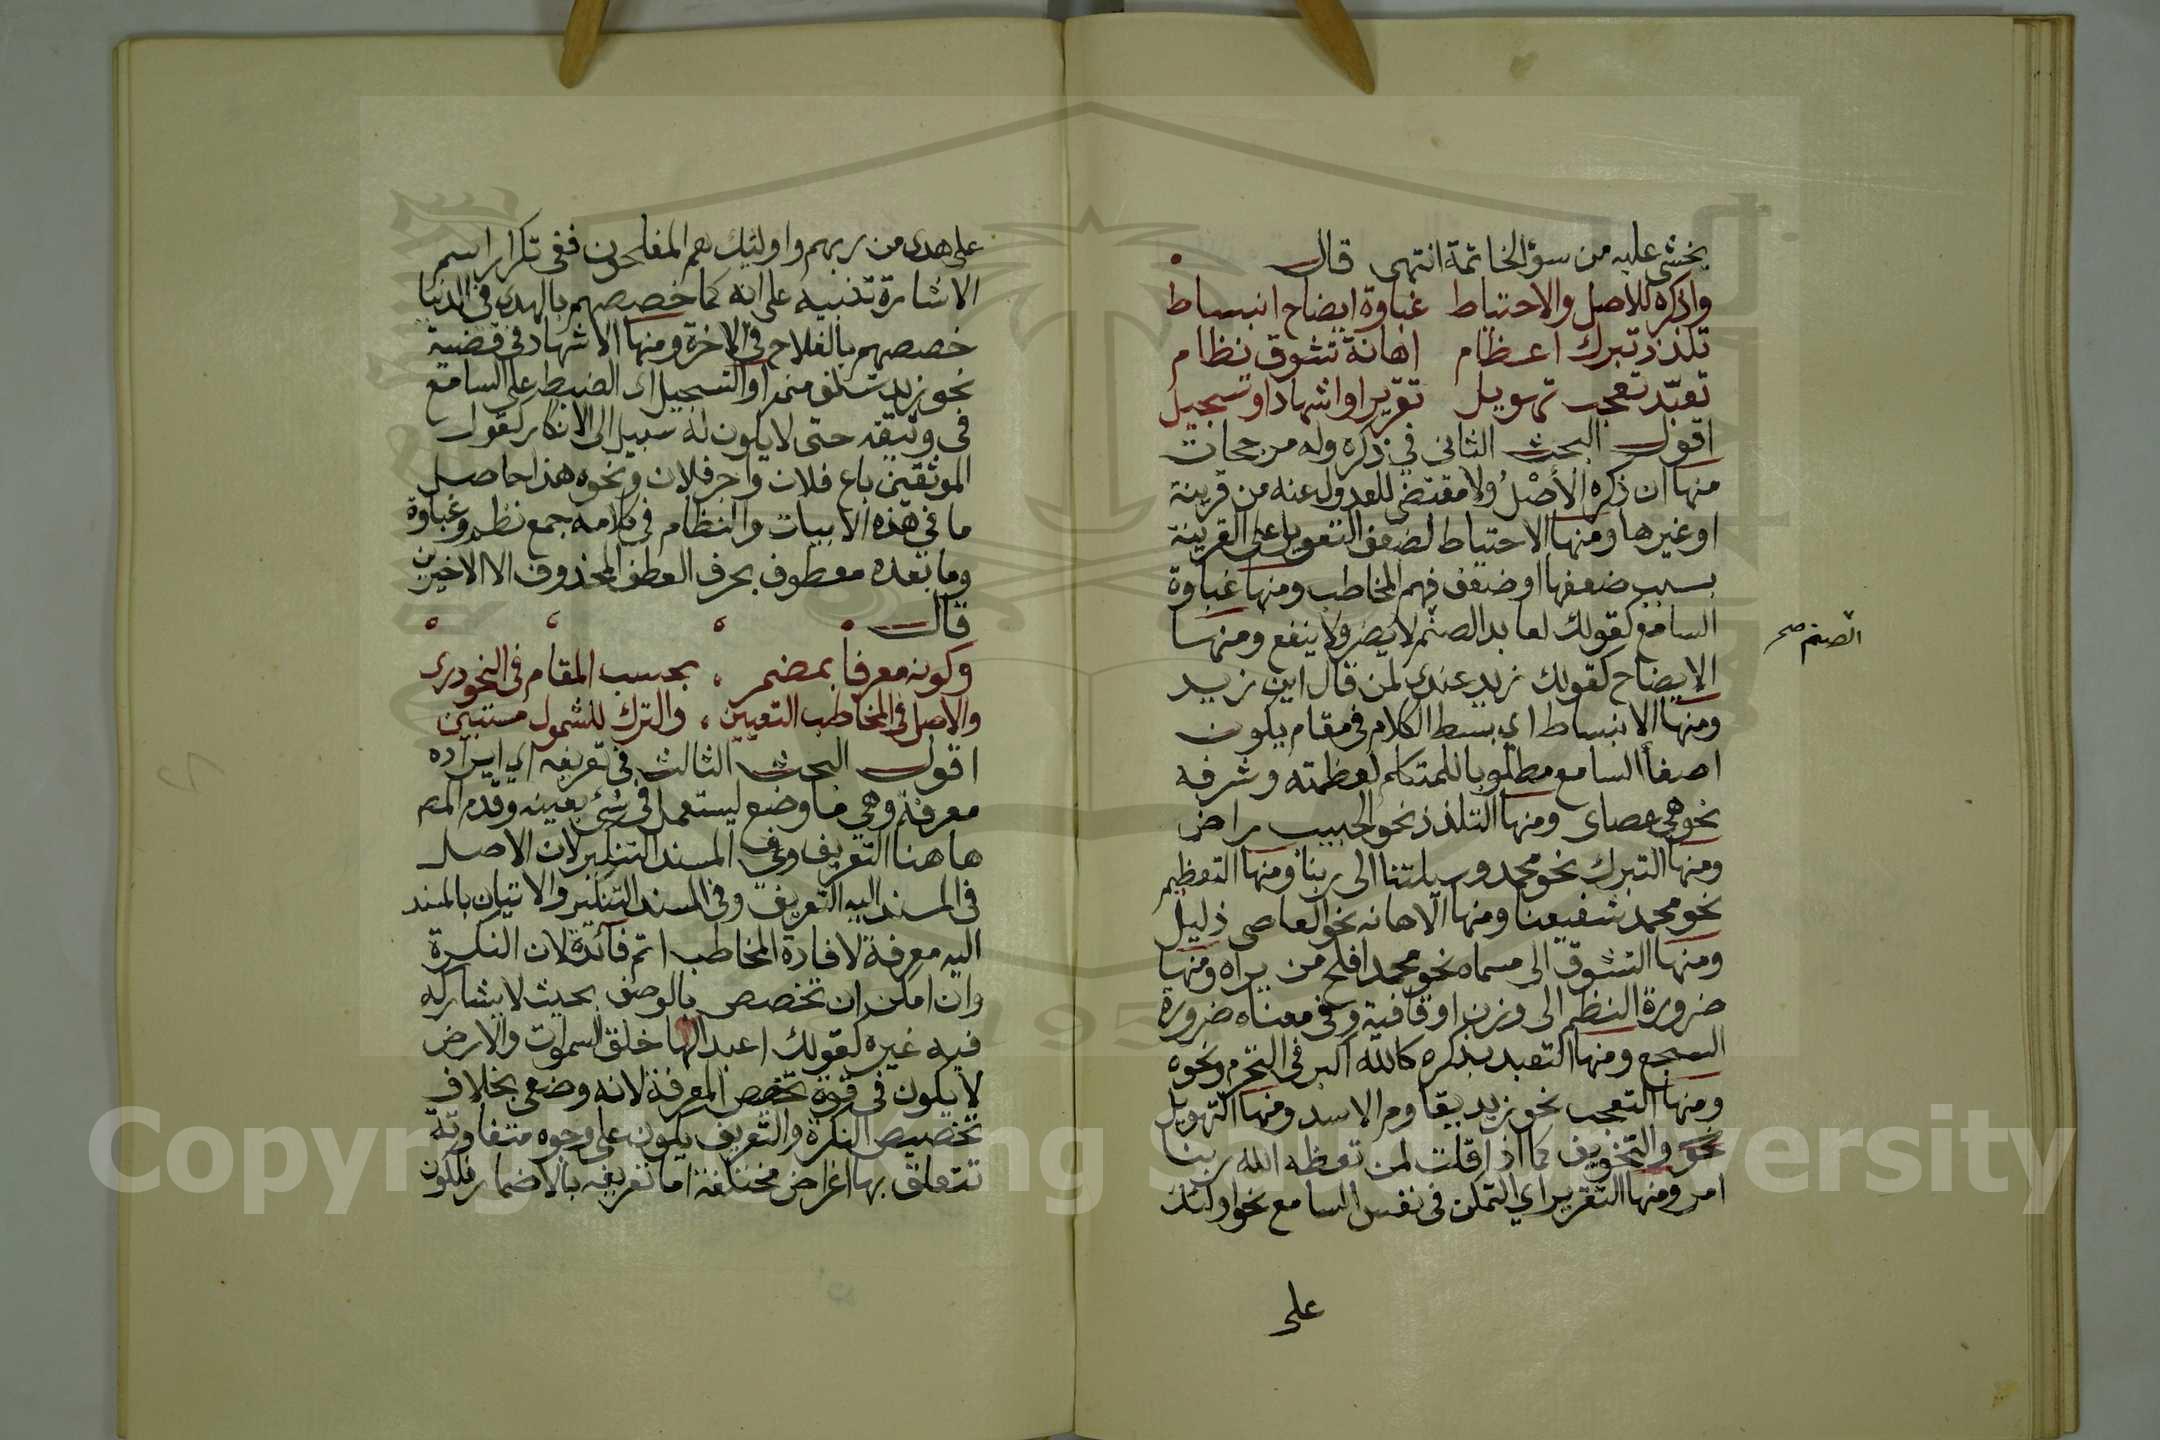 يخشى عليه من سؤ الخاتمة انتهى قال
واذكره للاصل والاحتياط غباوة ايضاح انبساط
تلذذ تبرك اعظام اهانة تشوق نظام
تعبّد تعجب تهويل تقرير او اشهاد او تسجيل
اقول البحث الثاني في ذكره وله مرجحات
منها ان ذكره الأصْلُ ولا مقتضى للعدول عنه من قرينة
او غيرها ومنها الاحتياط لضعف التعويل على القرينة
بسبب ضعفها او ضعف فهم المخاطب ومنها غباوة
السامع كقولك لعابد الصنم لا يضر ولا ينفع ومنها
الصنم صح
الايضاح كقولك زيد عندى لمن قال اين زيد
ومنها الانبساط اي بسط الكلام في مقام يكون
اصغأ السامع مطلوبا للمتكلم لعظمته وشرفه
نحو هى عصاى ومنها التلذذ نحو الحبيب راض
ومنها التبرك نحو محمد وسيلتنا الى ربنا ومنها التعظيم
نحو محمد شفيعنا ومنها الاهانه نحو العاصى ذليل
ومنها التشوق الى مسماه نحو محمد افلح من يراه ومنها
ضرورة النظم الى وزن او قافية وفى معناه ضرورة
السجع ومنها التعبد بذكره كالله اكبر فى التحرم ونحوه
ومنها التعجب نحو زيد يقاوم الاسد ومنها التهويل
والتخويف كما اذا قلت لمن تعظه الله ربنا
امر ومنها التقرير اي التمكن فى نفس السامع نحو اولئك
على
على هدى من ربهم واوليك هم المفلحون ففى تكرار اسم
الاشارة تنبيه على انه كما خصصهم بالهدى فى الدنيا
خصصهم بالفلاح فى الاخرة ومنها الاشهاد فى قضية
نحو زيد تسلف منى او التسجيل اى الضبط على السامع
فى وثيقه حتى لا يكون له سبيل الى الانكار كقول
الموثقين باع فلان واجر فلان ونحوه هذا حاصل
ما فى هذه الابيات والنظام في كلامه جمع نظم وغباوة
وما بعده معطوف بحرف العطف المحذوف الا الاخيرين
قال
وكونه معرفا بمضمر بحسب المقام فى النحو درى
والاصل فى المخاطب التعيين والترك للشمول مستبين
اقول البحث الثالث في تعريفه اي ايراده
معرفة وهي ما وضع ليستعمل فى شئ بعينه وقدم المص
هاهنا التعريف وفى المسند التنكير لان الاصل
فى المسند اليه التعريف وفى المسند التنكير والاتيان بالمسند
اليه معرفة لافادة المخاطب اتم فآئدة لان النكرة
وان امكن ان تخصص بالوصف بحيث لا يشاركه
فيه غيره كقولك اعبد الها خلق السموات والارض
لا يكون فى قوة تخصص المعرفة لانه وضعى بخلاف
تخصيص النكرة والتعريف يكون على وجوه متفاوتة
تتعلق بها اغراض مختلفة اما تعريفه بالاضمار فلكون
Copyright © King Saud University